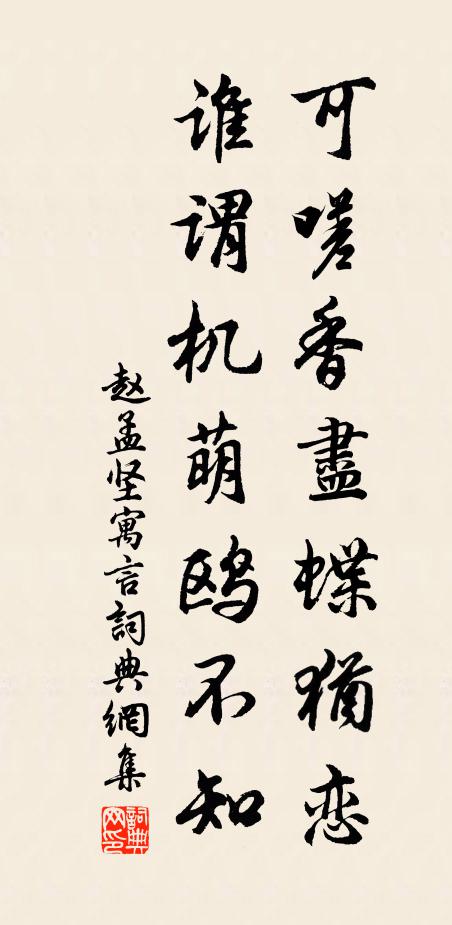 可嗟香盡蝶猶恋
谁谓机萌鸥不知
赵孟坚寓言詞典網集
詞典网印